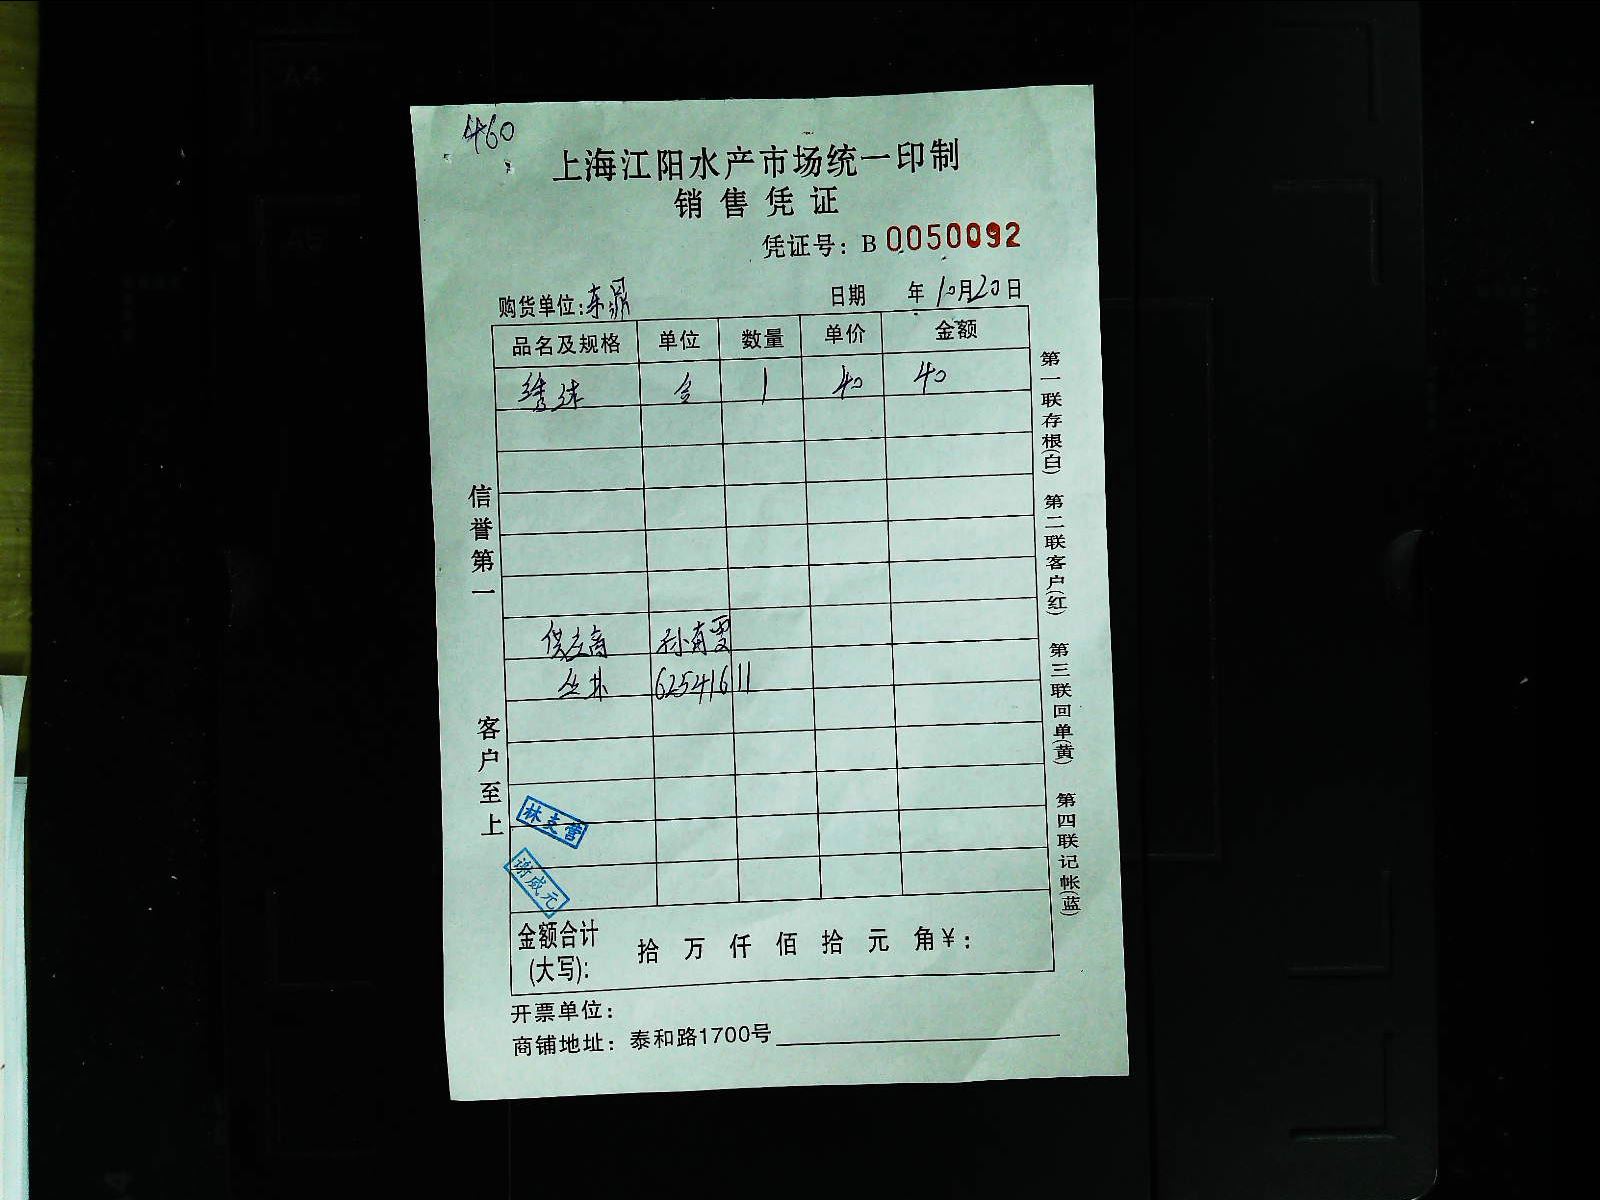 460
上海江阳水产市场统一印制
销售凭证
凭证号: B 0050092
购货单位:东鼎 日期 年10月20日
品名及规格 单位 数量 单价 金额
绣球 1 40 40
供应商
丛林 62541611
林支营
谢威元
金额合计(大写): 拾 万 仟 佰 拾 元 角¥:
开票单位:
商铺地址: 泰和路1700号
信誉第一 客户至上
第一联存根(白) 第二联客户(红) 第三联回单(黄) 第四联记帐(蓝)
A4
A5